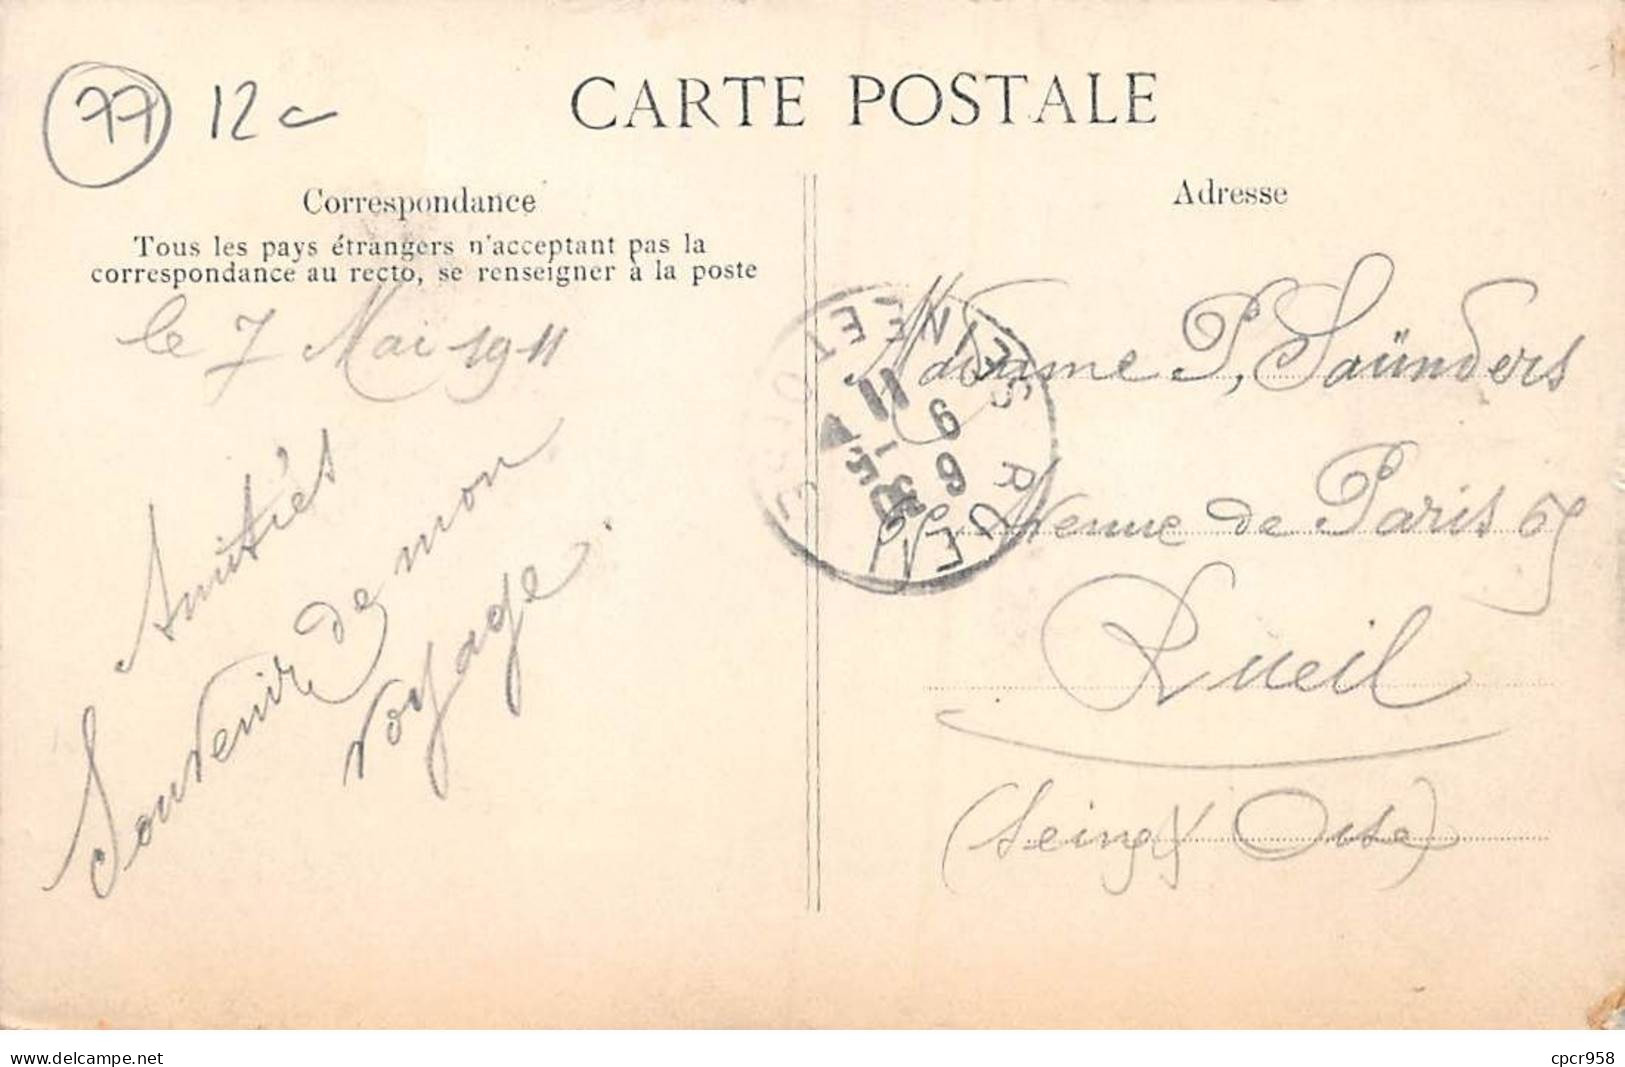 77 12
CARTE POSTALE
Correspondance
Tous les pays étrangers n'acceptant pas la
correspondance au recto, se renseigner à la poste
le 7 Mai 1911
Amitiés
Souvenir de mon
voyage.
Adresse
Madame P. Saünders
Avenue de Paris
Rueil
(Seine & Oise)
RUEIL SEINE ET OISE
www.delcampe.net
cpcr958